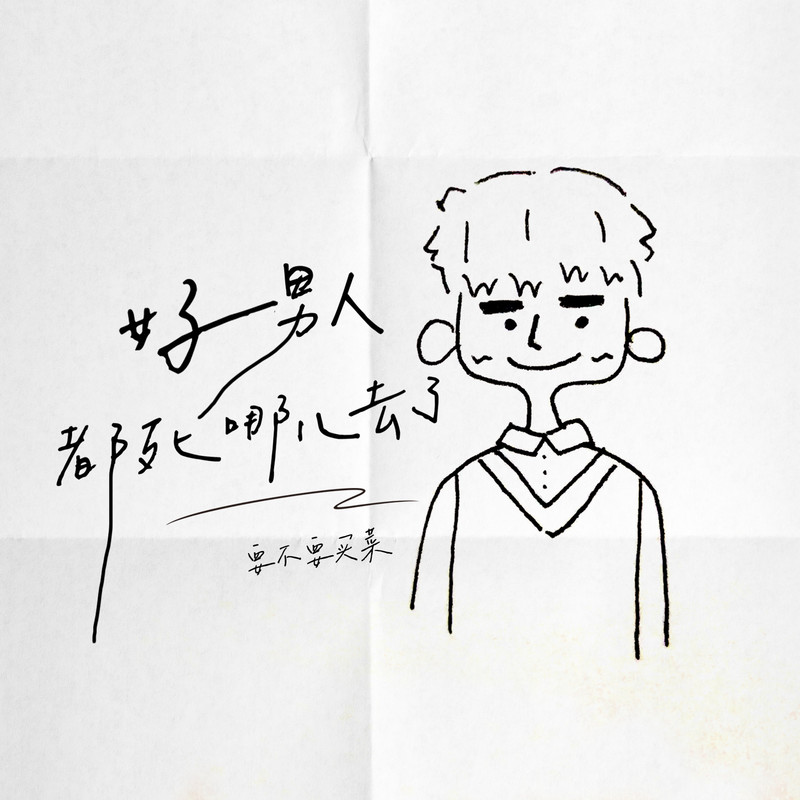 好男人
都死哪儿去了
要不要买菜